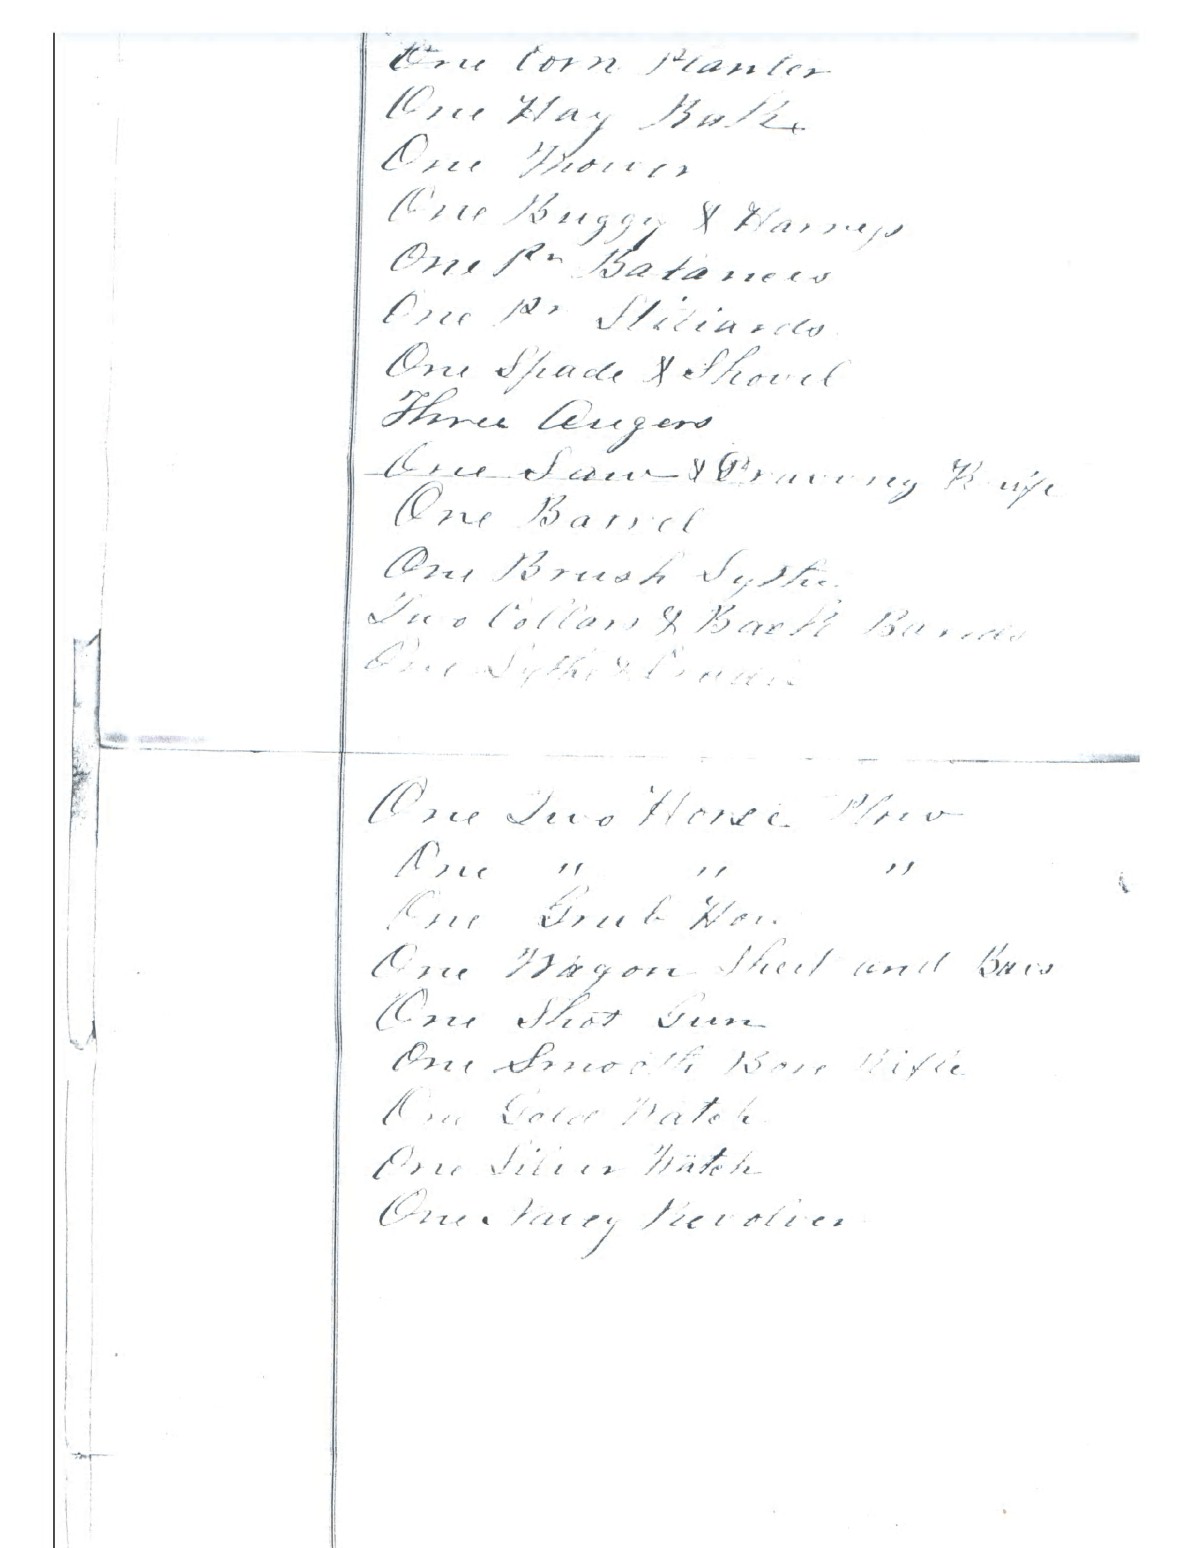 One Corn Planter
One Hay Rake
One Mower
One Buggy & Harness
One Pr Balances
One Pr Stiliards
One Spade & Shovel
Three Augers
One Saw & Drawing Knife
One Barrel
One Brush Sythe
Two Collars & Back Bands
One Sythe & Cradle
One Two Horse Plow
One " " "
One Grub Hoe
One Wagon Sheet and Bows
One Shot Gun
One Smooth Bore Rifle
One Gold Watch
One Silver Watch
One Navey Revolver